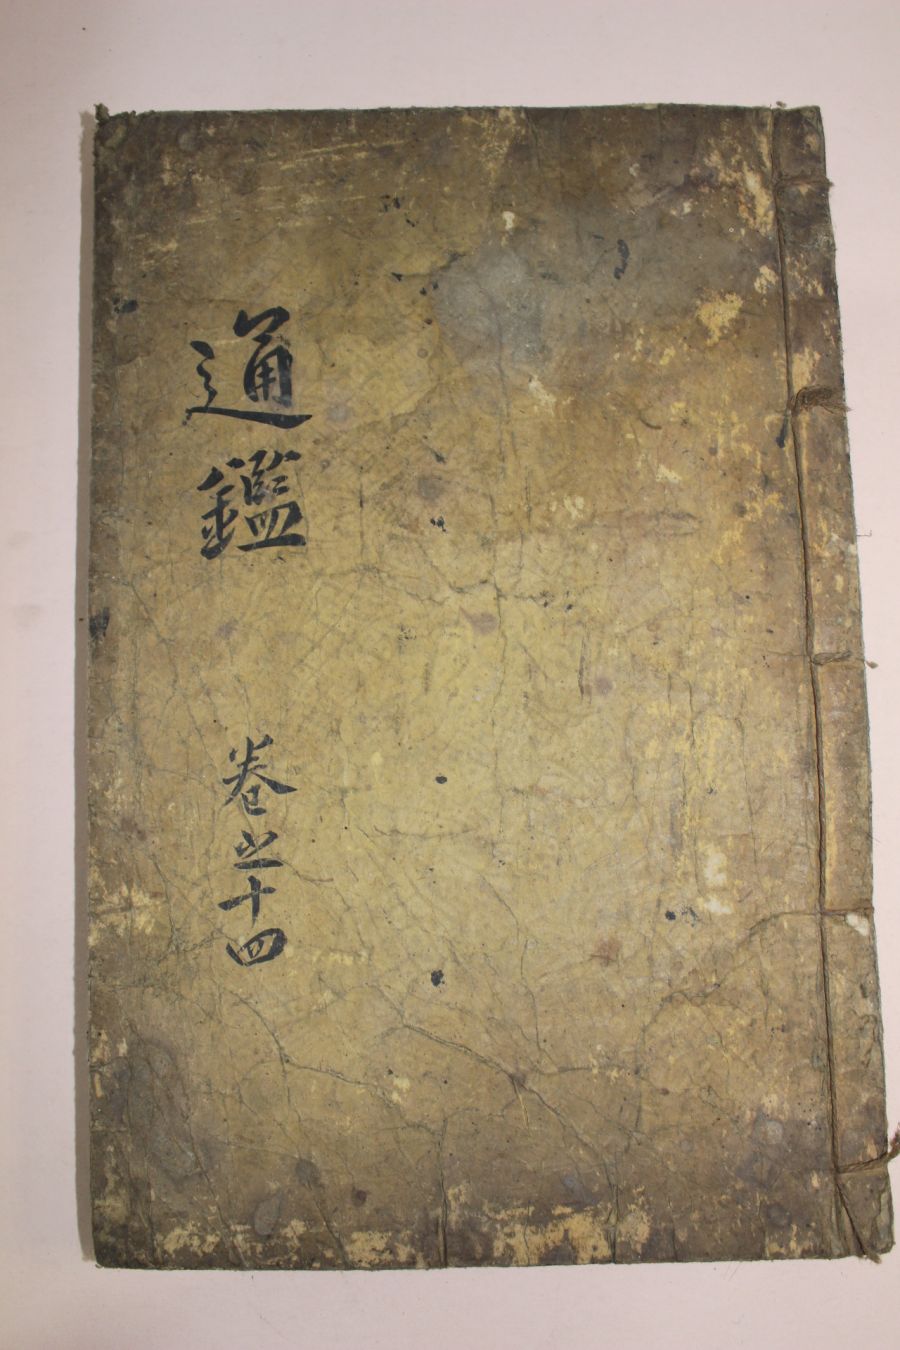 通鑑
卷之十四